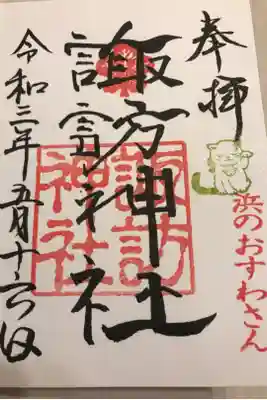 奉拝
浜のおすわさん
諏訪神社
諏訪
神社
令和三年五月十六日